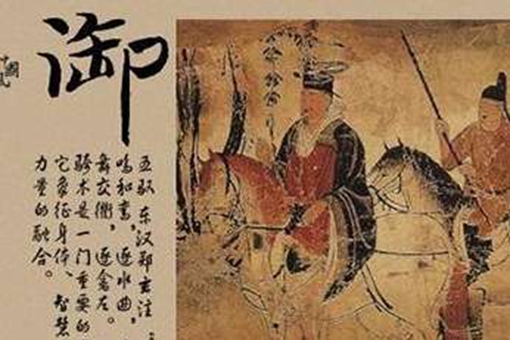 御
五驭 东汉郑玄注
鸣和鸾，逐水曲，
舞交衢，逐禽左。
骑术是一门重要的
它象征身体、智慧
力量的融合。
國風